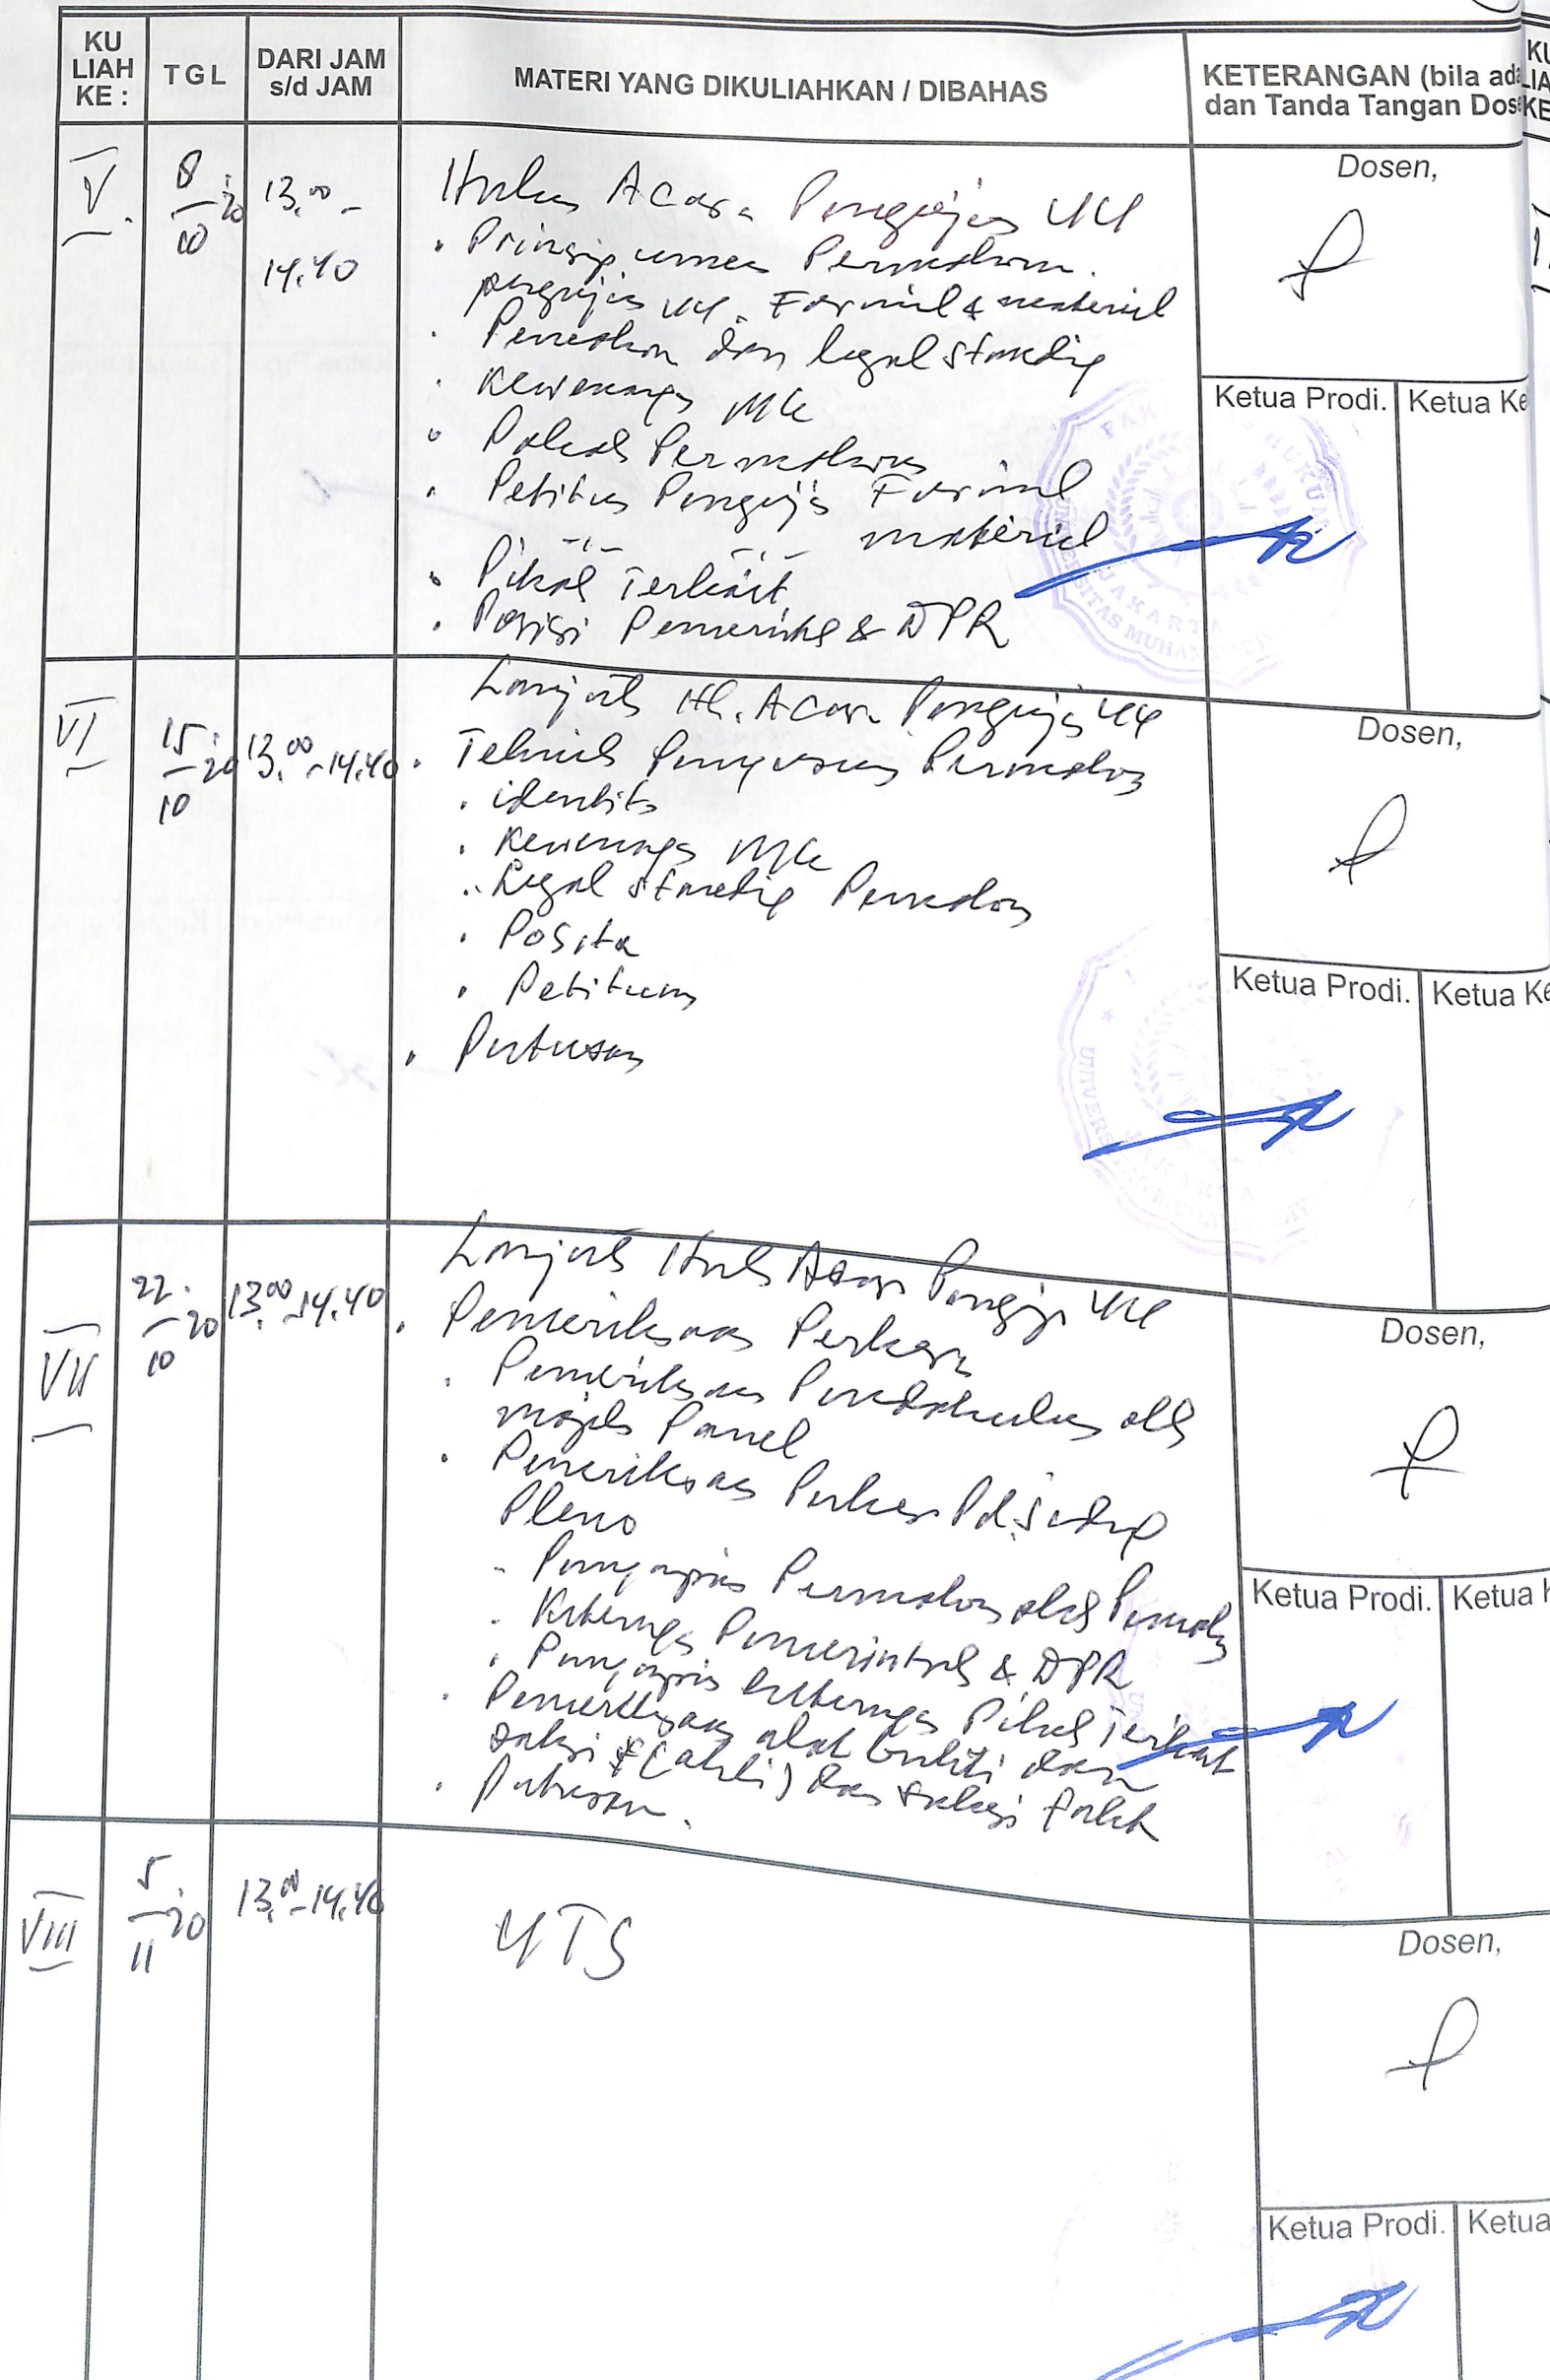 KU
LIAH
KE :
TGL
DARI JAM
s/d JAM
MATERI YANG DIKULIAHKAN / DIBAHAS
KETERANGAN (bila ada
dan Tanda Tangan Dos
V.
8/10-20
13.00 -
14.40
Hukum Acara Pengujian UU
• Prinsip umum Permohonan
pengujian UU. Formil & materiil
• Pemohon dan legal standing
• Kewenangan MK
• Pokok Permohonan
• Petitum Pengujian Formil
-"- -"- materiil
• Pihak Terkait
• Posisi Pemerintah & DPR
Dosen,
Ketua Prodi.
Ketua Ke
VI
15/10-20
13.00-14.40
Lanjut Hk. Acara Pengujian UU
• Teknik Penyusunan Permohonan
• identitas
• Kewenangan MK
• Legal standing Pemohon
• Posita
• Petitum
• Putusan
Dosen,
Ketua Prodi.
Ketua Ke
VII
22/10-20
13.00-14.40
Lanjut Huk Acara Pengujian UU
• Pemeriksaan Perkara
• Pemeriksaan Pendahuluan oleh
majelis Panel
• Pemeriksaan Perkara Pd. Sidang
Pleno
- Penyampaian Permohonan oleh Pemohon
• Keterangan Pemerintah & DPR
• Penyampaian keterangan Pihak Terkait
• Pemeriksaan alat bukti dan
saksi (ahli) dan saksi fakta
• Putusan.
Dosen,
Ketua Prodi.
Ketua
VIII
5/11-20
13.00-14.40
UTS
Dosen,
Ketua Prodi.
Ketua